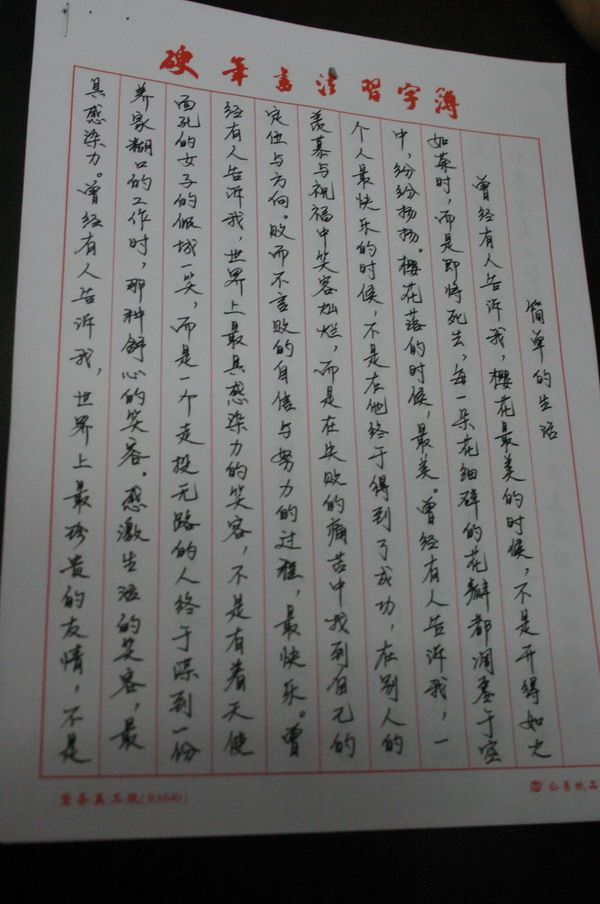 硬筆書法習字簿
简单的生活
曾经有人告诉我，樱花最美的时候，不是开得如火
如荼时，而是即将死去，每一朵花细碎的花瓣都凋零于空
中，纷纷扬扬。樱花落的时候，最美。曾经有人告诉我，一
个人最快乐的时候，不是在他终于得到了成功，在别人的
羡慕与祝福中笑容灿烂，而是在失败的痛苦中找到自己的
定位与方向。败而不言败的自信与努力的过程，最快乐。曾
经有人告诉我，世界上最具感染力的笑容，不是有着天使
面孔的女子的倾城一笑，而是一个走投无路的人终于到一份
养家糊口的工作时，那种舒心的笑容。感激生活的笑容，最
具感染力。曾经有人告诉我，世界上最珍贵的友情，不是